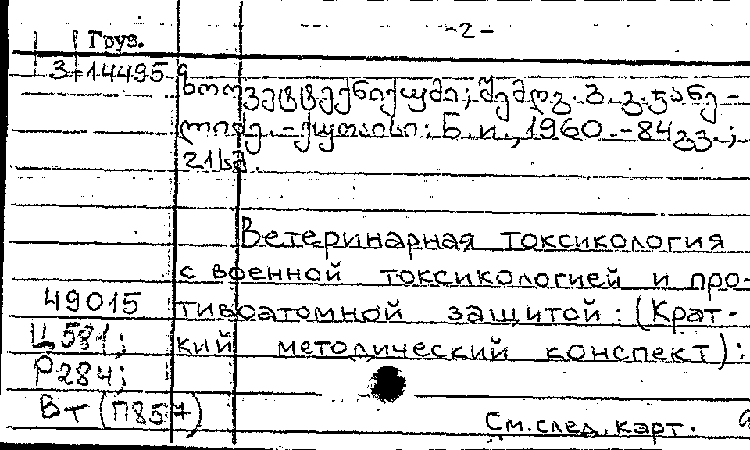 -2-
Груз.
3-14495
ზოოვეტტექნიკუმი; შემდგ. ვ. გ. ჯანე-
ლიძე. - ქუთაისი: Б. и., 1960. - 84 გვ.;
21 სმ.
Ветеринарная токсикология
с военной токсикологией и про-
49015 тивоатомной защитой: (Крат-
Ц581; кий методический конспект):
Р284;
Вт (П857)
См. след. карт.